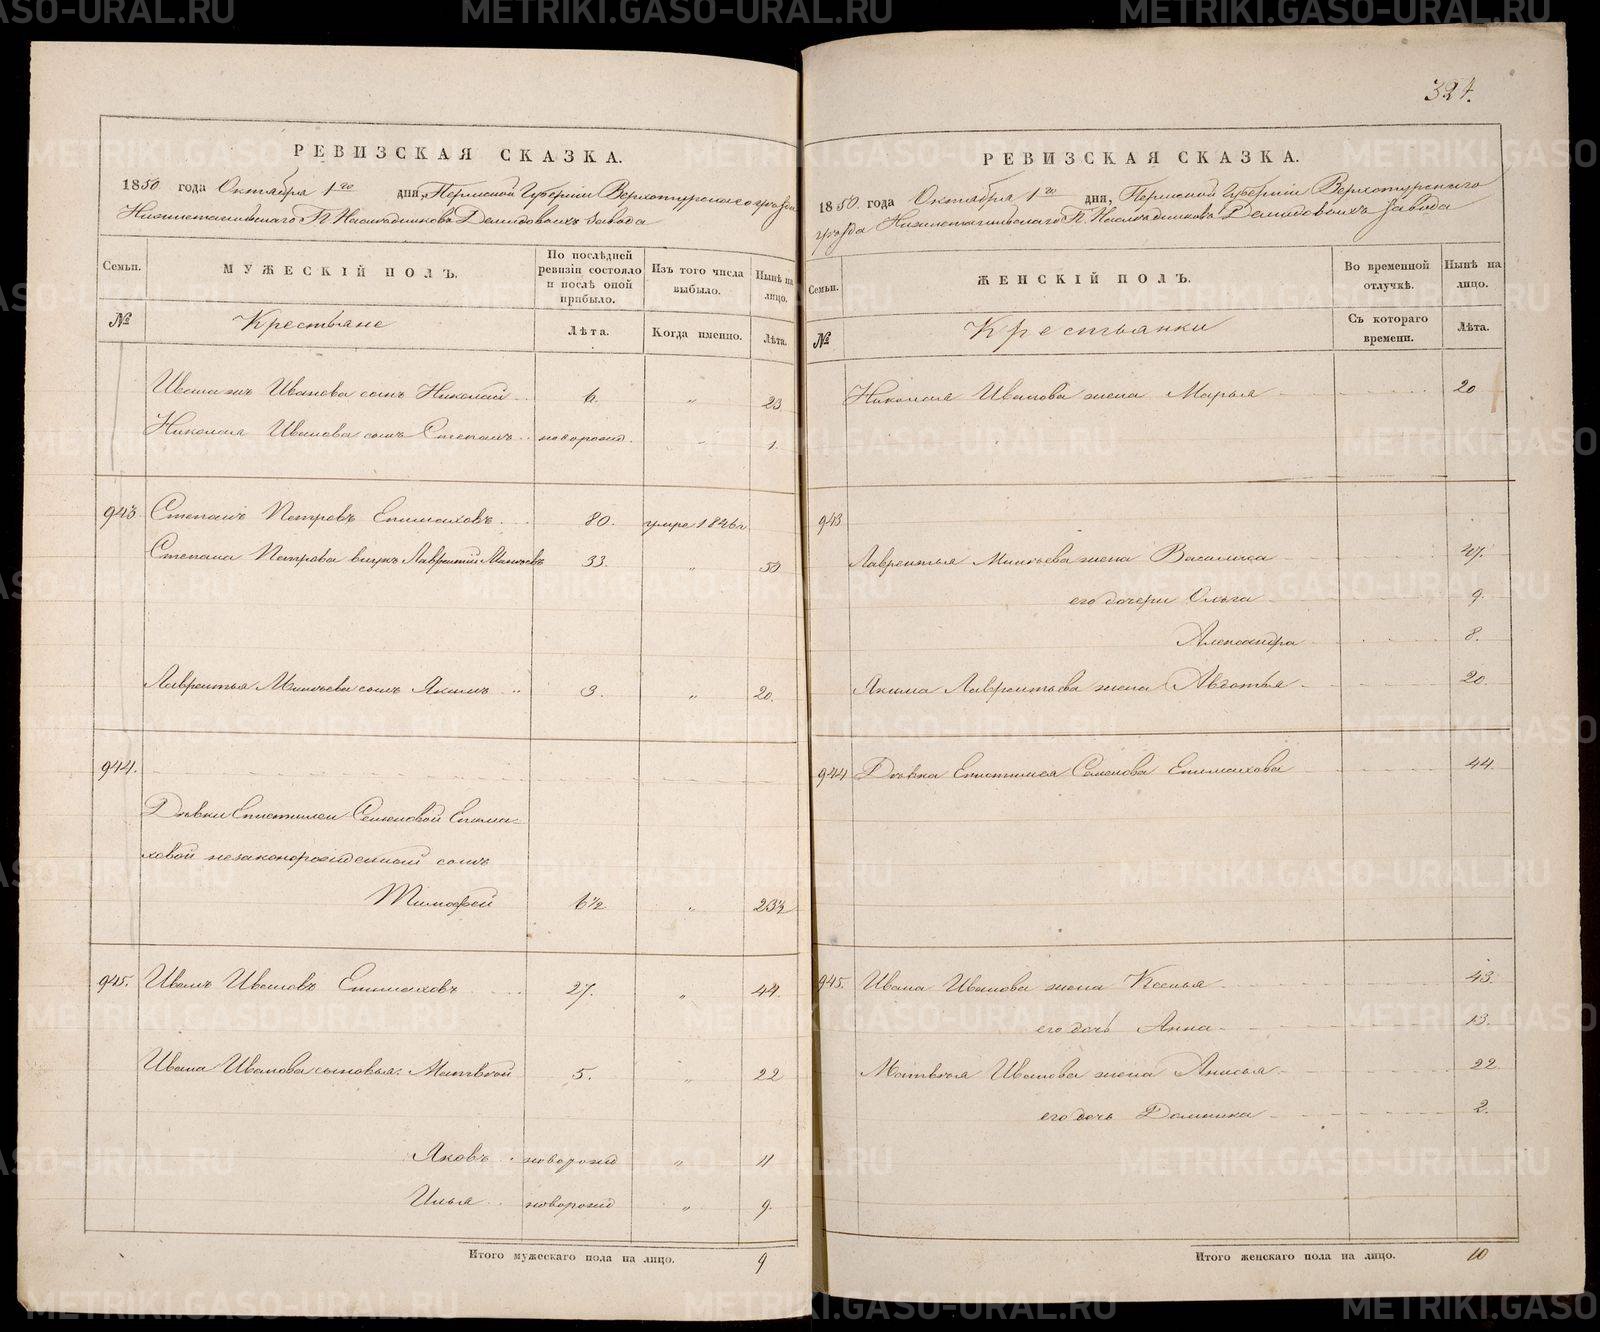 324.
РЕВИЗСКАЯ СКАЗКА.
1850 года Октября 1го дня, Пермской Губернiи Верхотурскаго уѣзда
Нижнетагильскаго Г. Наслѣдниковъ Демидовыхъ завода
Семьи. МУЖЕСКІЙ ПОЛЪ. По послѣдней ревизіи состояло и послѣ оной прибыло. Изъ того числа выбыло. Нынѣ на лицо.
№ Крестьяне Лѣта. Когда именно. Лѣта.
Ивана жъ Иванова сынъ Николай 6. " 23
Николая Иванова сынъ Степанъ новорожд. " 1.
943 Степанъ Петровъ Епимаховъ 80. умре 1846 г
Степана Петрова внукъ Лаврентiй Мануевъ 33. " 50
Лаврентья сынъ Якимъ 3. " 20.
944.
Дѣвки Епистимеи Семеновой Епима-
ховой незаконорожденный сынъ
Тимофей 6½ " 23½
945. Иванъ Ивановъ Епимаховъ 27. " 44.
Ивана Иванова сыновья: Матвѣй 5. " 22
Яковъ новорожд " 11
Илья новорожд " 9.
Итого мужескаго пола на лицо. 9
РЕВИЗСКАЯ СКАЗКА.
1850 года Октября 1го дня, Пермской Губернiи Верхотурскаго
уѣзда Нижнетагильскаго Г. Наслѣдниковъ Демидовыхъ завода
Семьи. ЖЕНСКІЙ ПОЛЪ. Во временной отлучкѣ. Нынѣ на лицо.
№ Крестьянки Съ котораго времени. Лѣта.
Николая Иванова жена Марья 20
943
Лаврентья жена Василиса 47.
его дочери Ольга 9.
Александра 8.
Якима Лаврентьева жена Авдотья 20.
944 Дѣвка Епистимея Семенова Епимахова 44.
945. Ивана Иванова жена Ксенья 43.
его дочь Анна 13.
Матвѣя Иванова жена Анисья 22.
его дочь Домника 2.
Итого женскаго пола на лицо. 10
METRIKI.GASO-URAL.RU